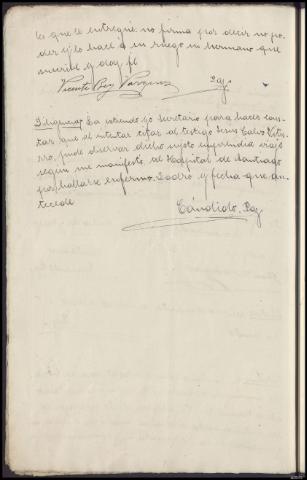 la que le entregué no firma por decir no po-
der y lo hace a su ruego su hermano que
suscribe y doy fé
Vicente Rey Vazquez Paz
Diligencia) La estiendo yo Secretario para hacer cons-
tar que al intentar citar al testigo Jesus Calvo
pude observar dicho sujeto emprendia viaje
segun me manifestó al Hospital de Santiago
por hallarse enfermo. Lodro y fecha que an-
tecede
Cándido Paz